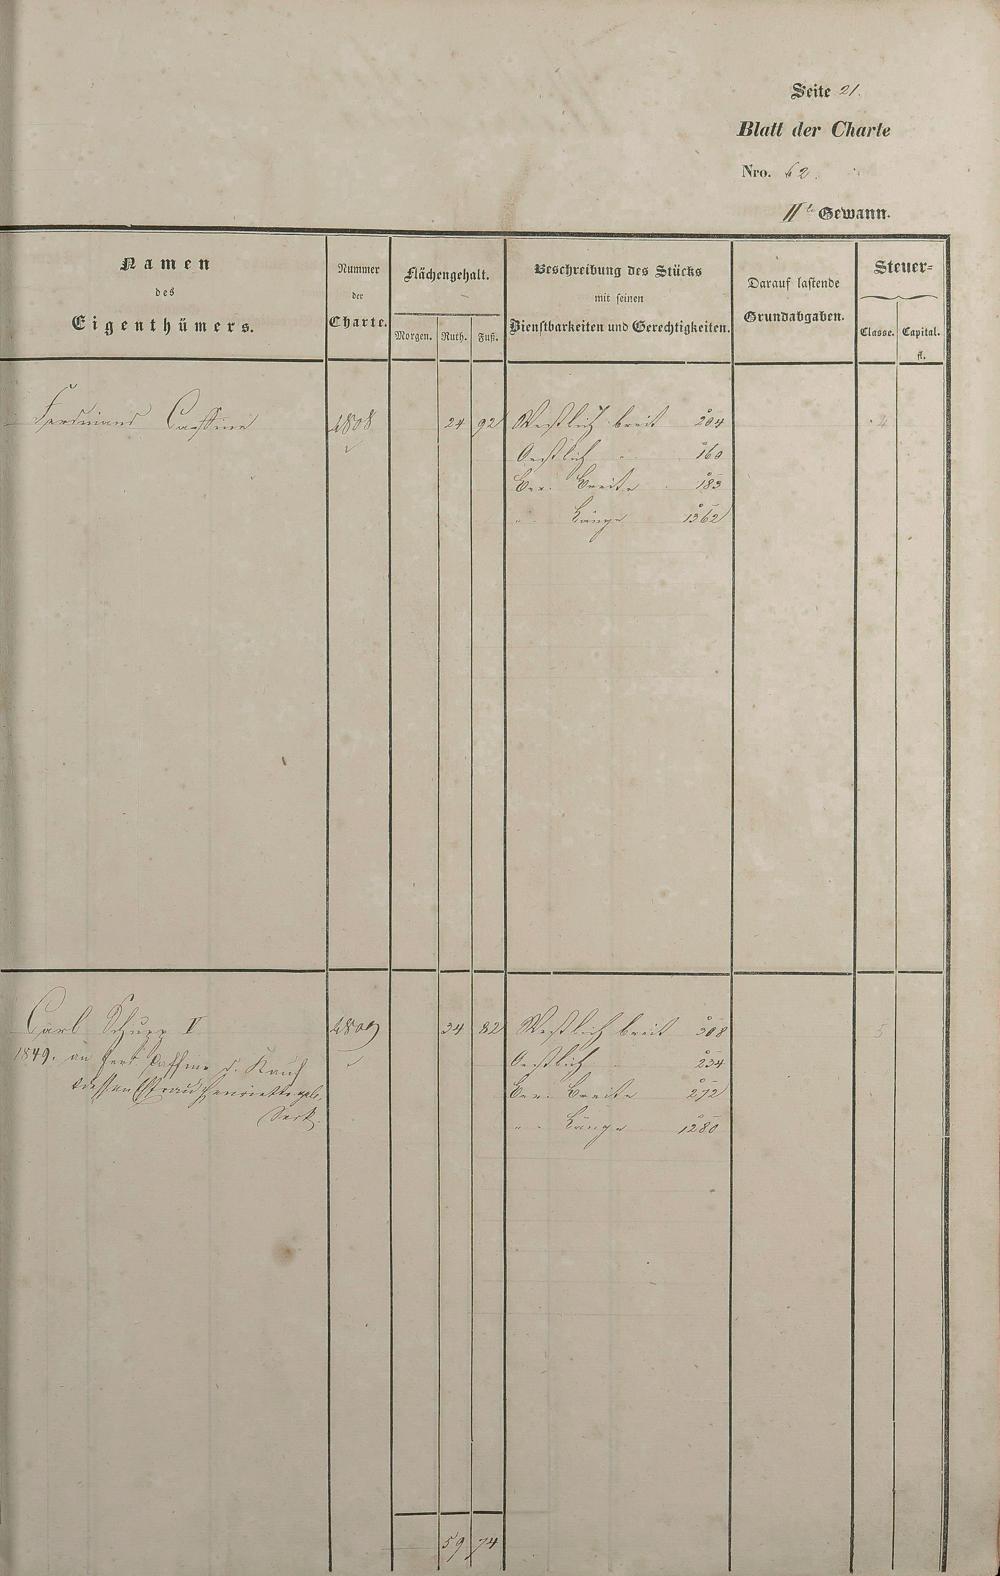 Seite 21.
Blatt der Charte
Nro. 62.
IIte Gewann.
Namen
des
Eigenthümers.
Nummer
der
Charte.
Flächengehalt.
Morgen. Ruth. Fuß.
Beschreibung des Stücks
mit seinen
Dienstbarkeiten und Gerechtigkeiten.
Darauf lastende
Grundabgaben.
Steuer-
Classe. Capital.
fl.
Ferdinand 1808 24 92 Westlich breit 204 4
Oestlich " 160
Ber. Breite 183
" Länge 1362
Carl Schupp V 1809 34 82 Westlich breit 308 5
1849. an Ferd. Caffine d. Kauf Oestlich 234
dessen Ehefrau Henriette geb. Ber. Breite 272
" Länge 1280
59 74